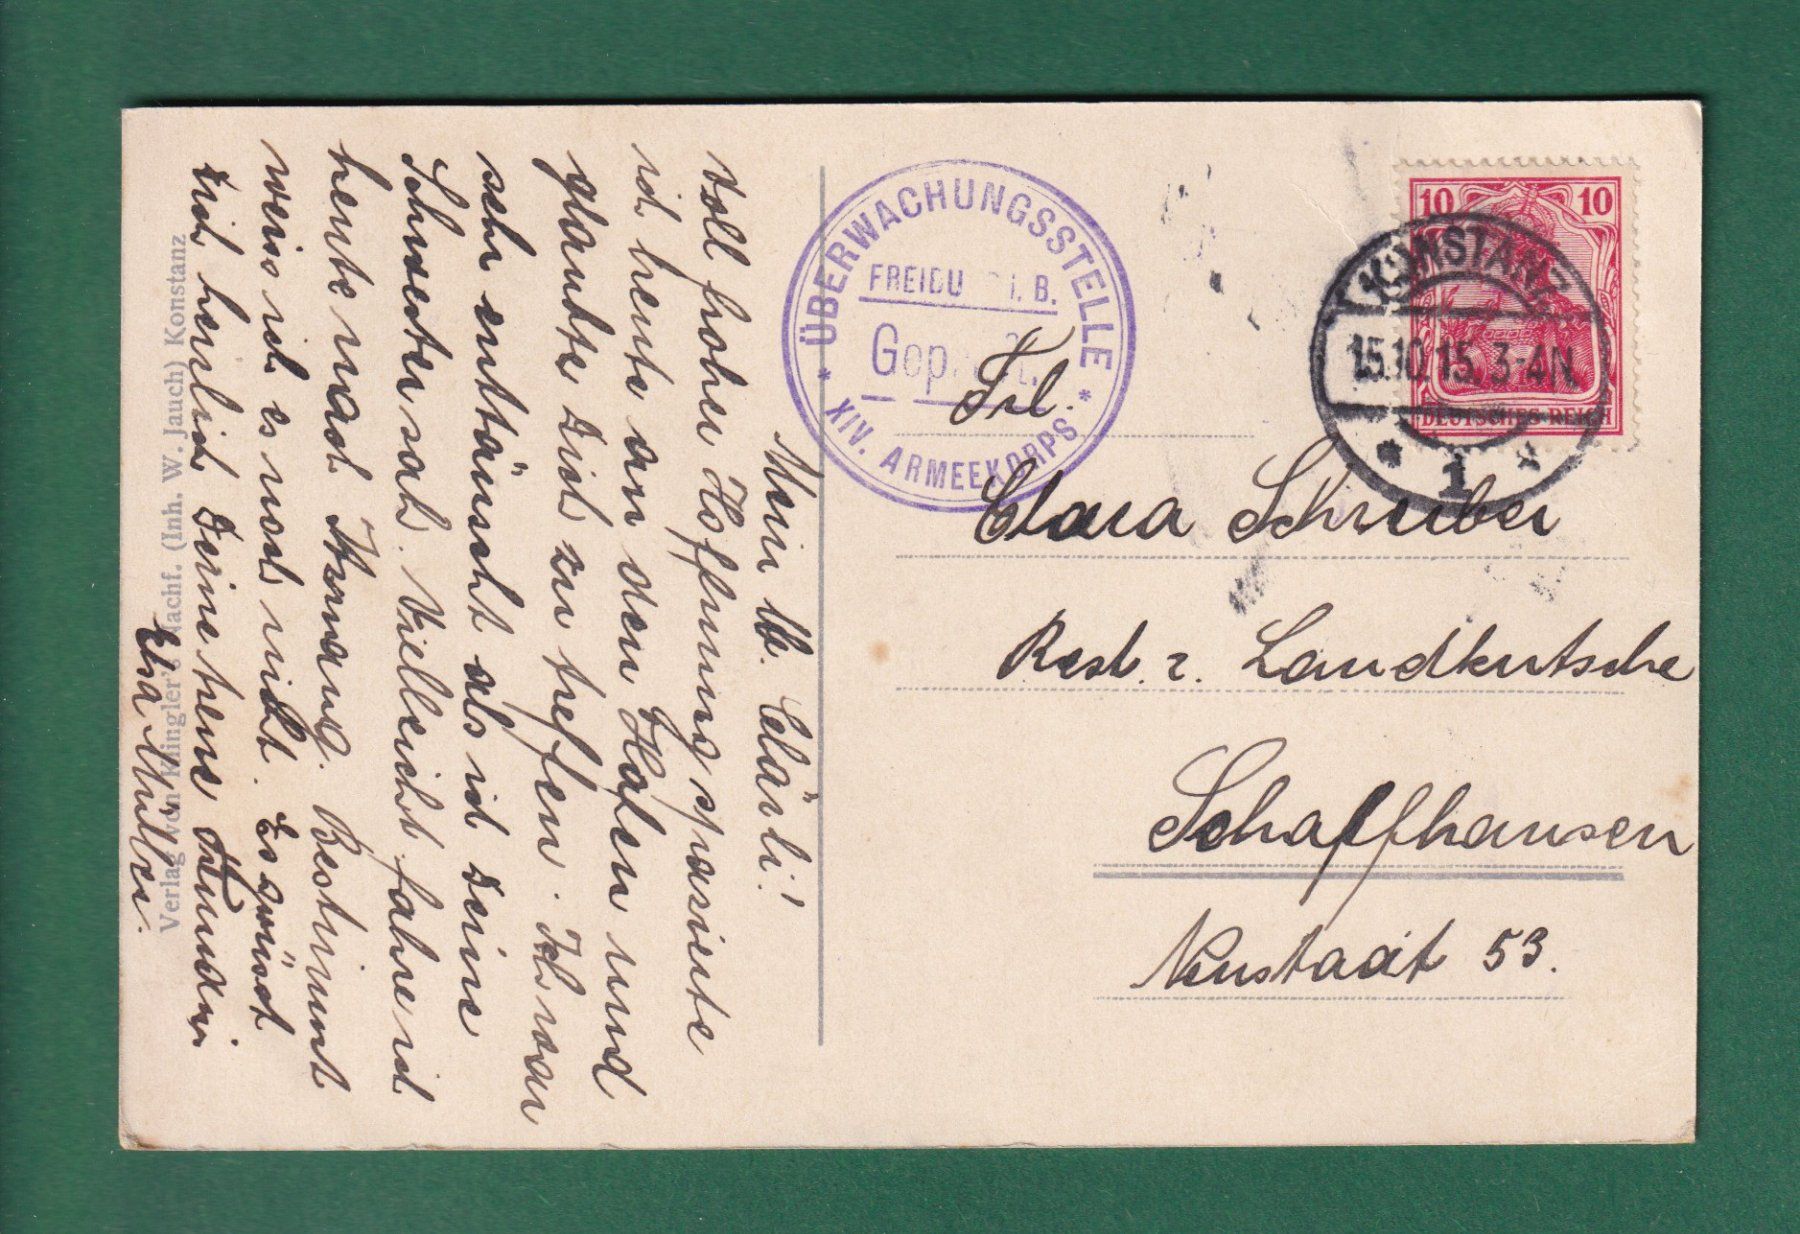 Mein lb. Clärli!
Voll froher Hoffnung spazierte
ich heute an den Hafen und
glaubte Dich zu treffen. Ich war
sehr enttäuscht als ich Deine
Schwester sah. Vielleicht fahre ich
heute nach Bestimmt
weiss ich es noch nicht. Es grüsst
Dich herzlich Deine treue Freundin
Elsa Müller.
Verlag von Klingler's Nachf. (Inh. W. Jauch) Konstanz
ÜBERWACHUNGSSTELLE
FREIBU I. B.
Gep
* XIV. ARMEEKORPS *
10 10
DEUTSCHES REICH
KONSTANZ
15.10.15. 3-4N.
* 1 *
Frl.
Clara Schreiber
Rest. z. Landkutsche
Schaffhausen
Neustadt 53.